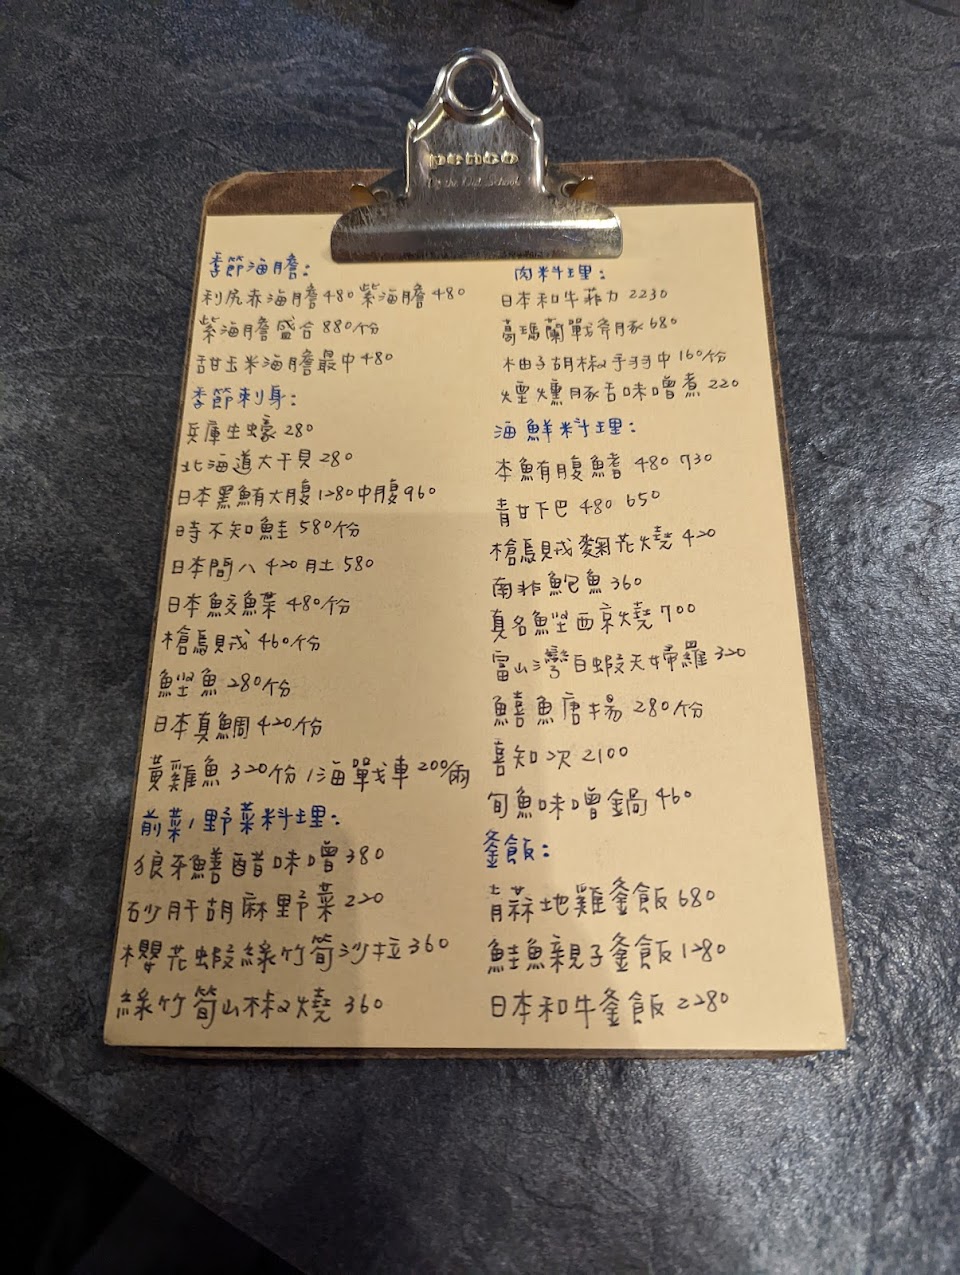 penco
季節海膽：
利尻赤海膽480 紫海膽480
紫海膽盛合880/份
甜玉米海膽最中480
季節刺身：
兵庫生蠔280
北海道大干貝280
日本黑鮪大腹1280中腹960
時不知鮭580/份
日本間八420肚580
日本鮫鰈480/份
槍烏賊460/份
鰹魚280/份
日本真鯛420/份
黃雞魚320/份/海戰車200/兩
前菜/野菜料理：
狼牙鱔醋味噌380
砂肝胡麻野菜220
櫻花蝦綠竹筍沙拉360
綠竹筍山椒燒360
肉料理：
日本和牛菲力2230
葛瑪蘭戰斧豚680
柚子胡椒手羽中160/份
煙燻豚舌味噌煮220
海鮮料理：
本鮪腹鰭480 730
青甘下巴480 650
槍烏賊麴花燒420
南非鮑魚360
真名鰹西京燒700
富山灣白蝦天婦羅320
鱚魚唐揚280/份
喜知次2100
旬魚味噌鍋460
釜飯：
青蒜地雞釜飯680
鮭魚親子釜飯1280
日本和牛釜飯2280